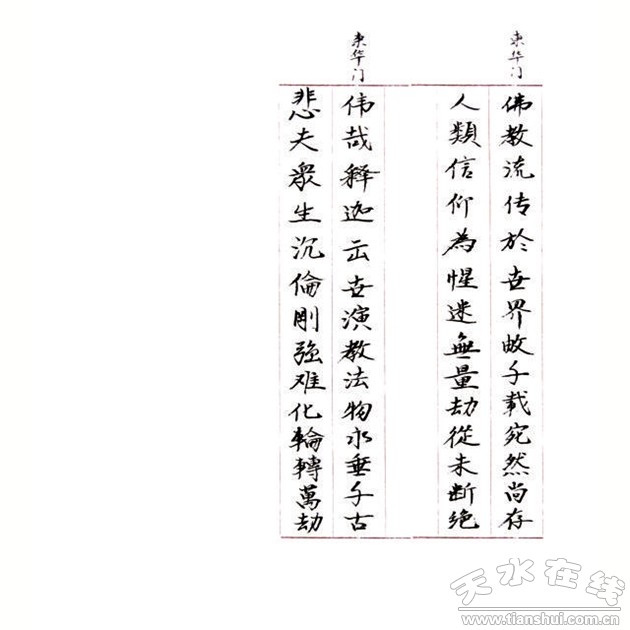 東华门
佛教流传於世界数千載宛然尚存
人類信仰為惺迷無量劫從未断绝
東华门
伟哉释迦出世演教法物永垂千古
悲夫衆生沉倫剛強难化輪轉萬劫
天水在线
www.tianshui.com.cn